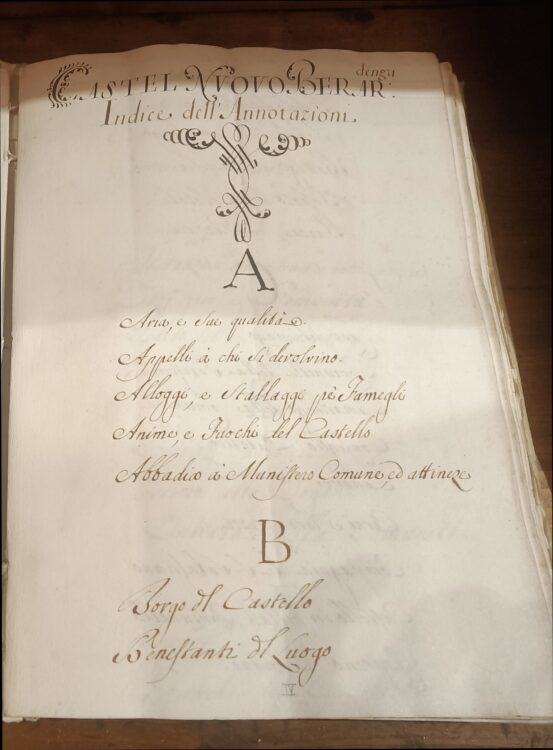 denga
CASTEL NVOVO BERAR:
Indice dell'Annotazioni
A
Aria, e sue qualità.
Appelli à chi si devolvino.
Alloggi, e Stallaggi pè Famegli
Anime, e Fuochi del Castello
Abbadia à Munistero Comune, ed attineze
B
Borgo dl Castello
Benestanti dl Luogo
IV